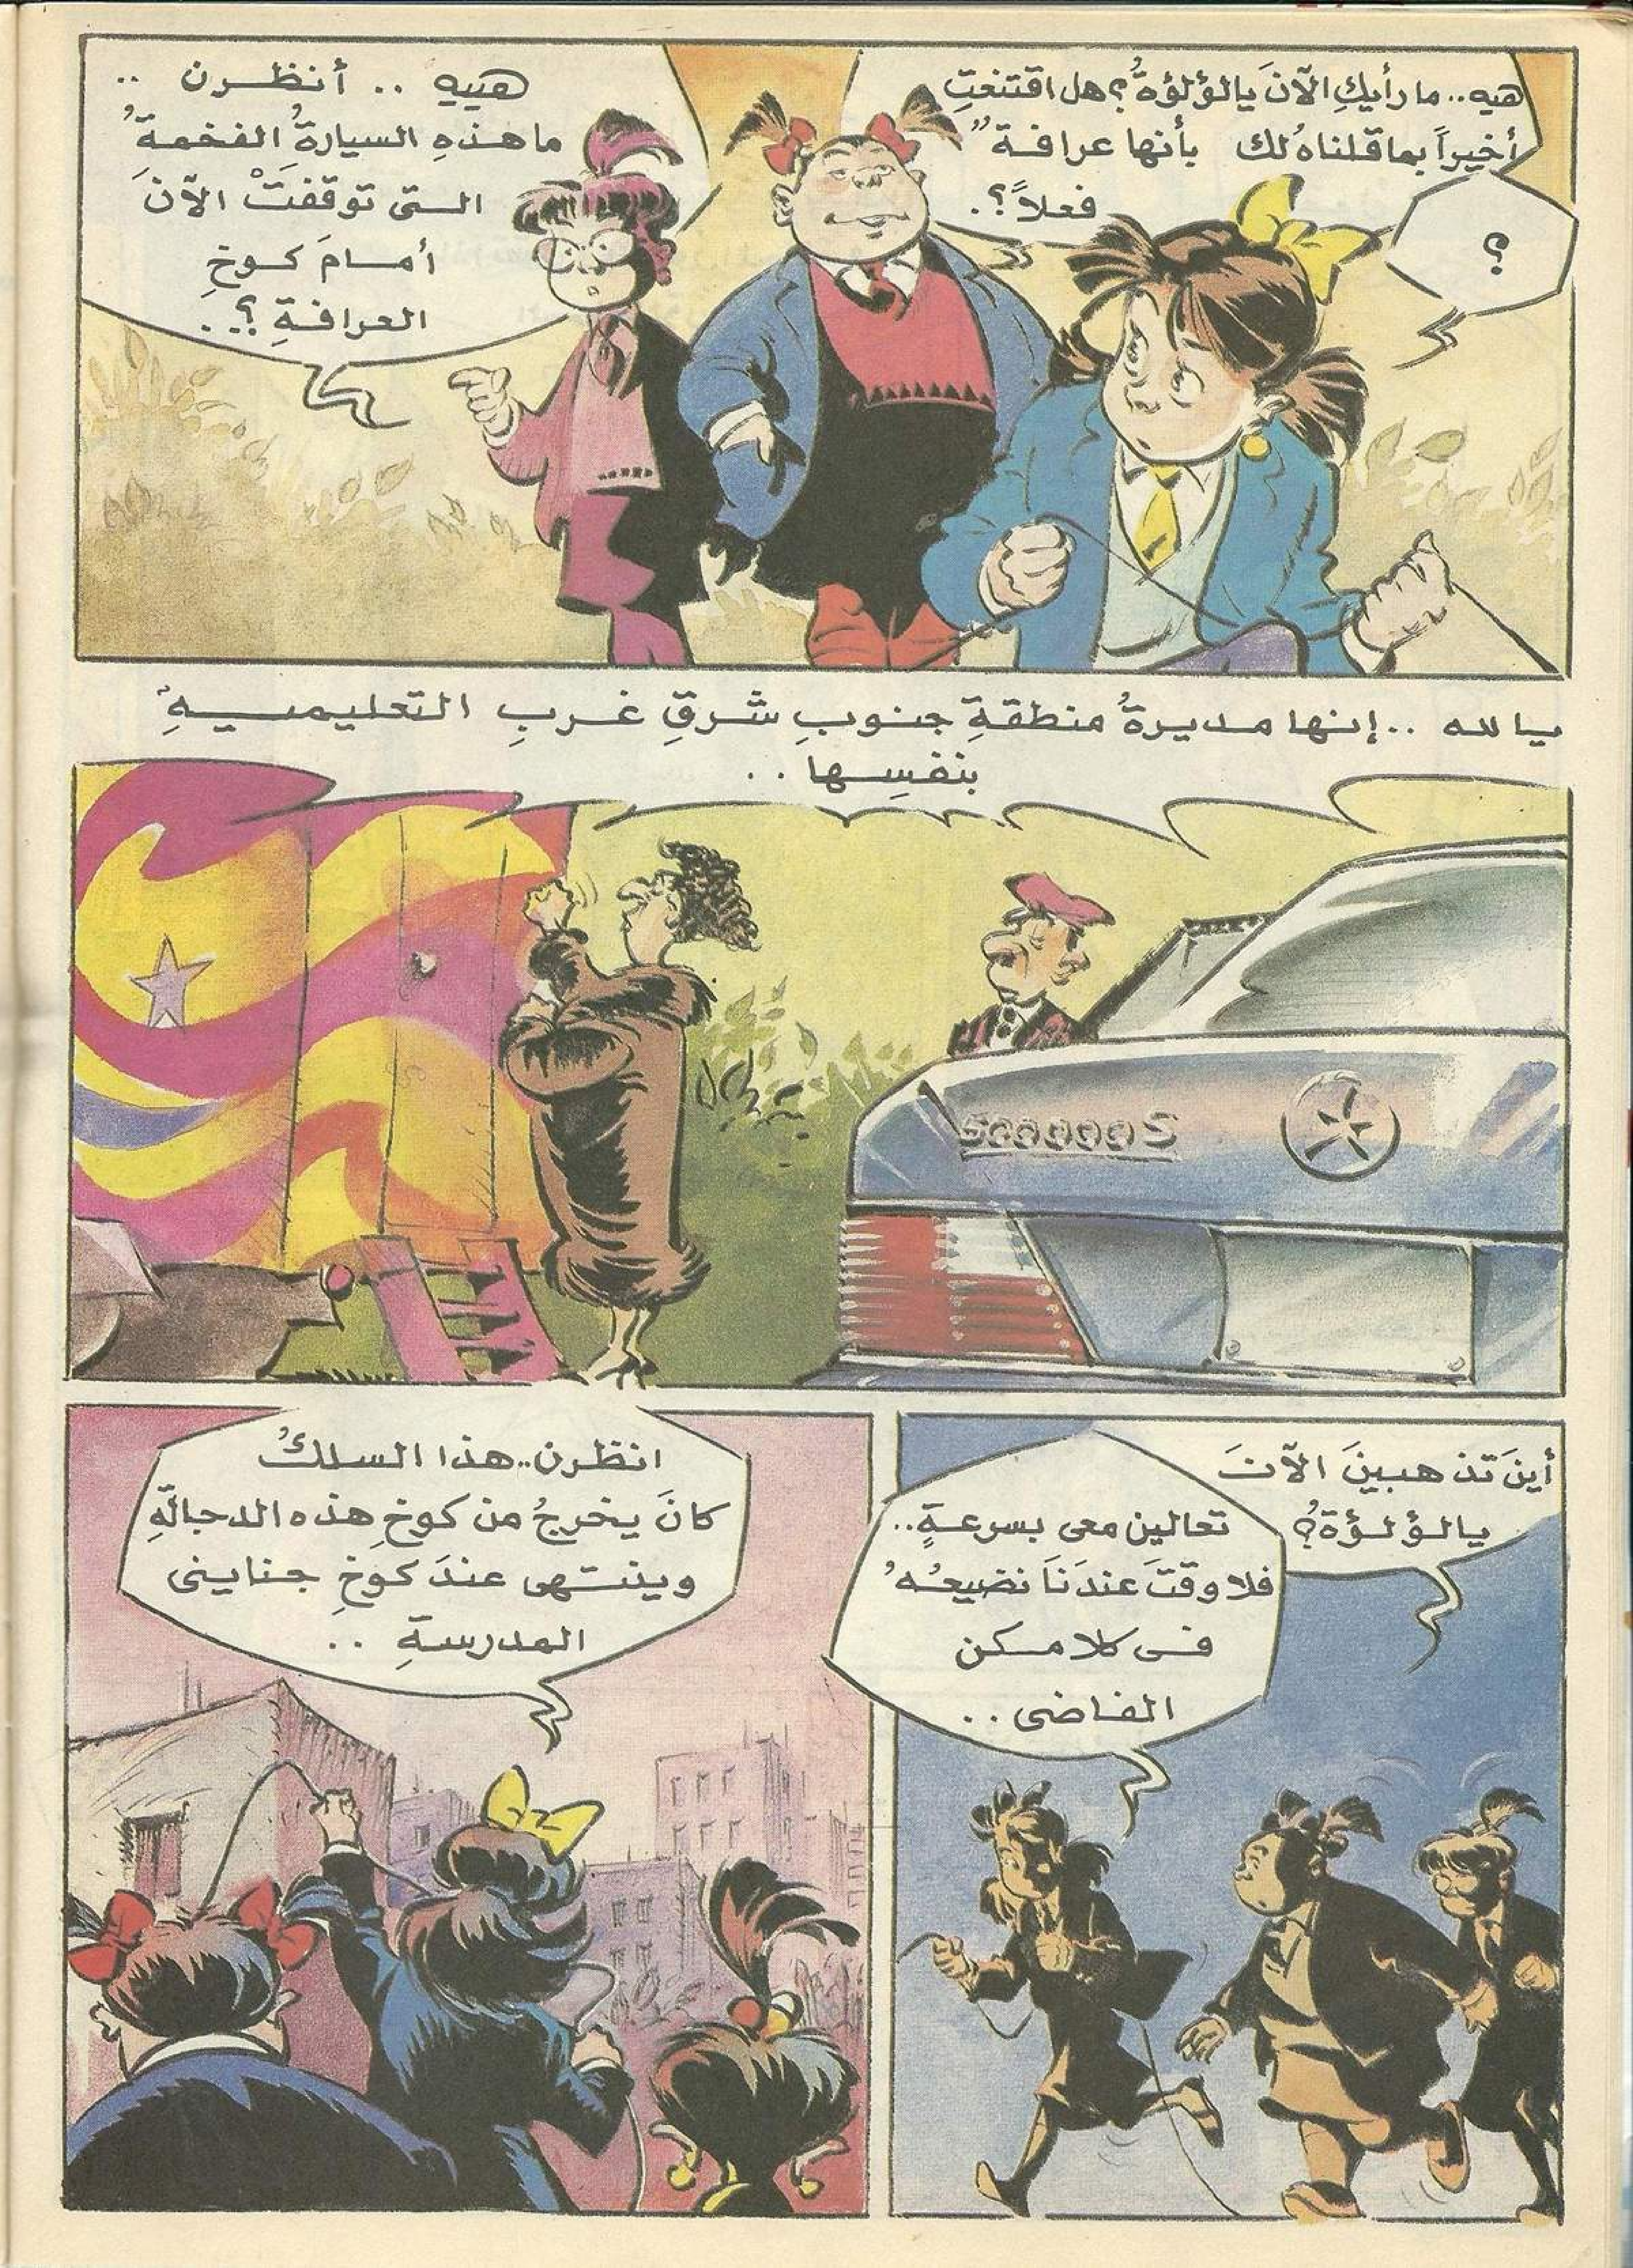 هيه.. ما رأيكِ الآنَ يالؤلؤةُ؟ هل اقتنعتِ
أخيراً بما قلناهُ لك بأنها عرافة"
فعلاً؟.
؟
هييه .. أنظرن ..
ما هذهِ السيارةُ الفخمةُ
التى توقفتْ الآنَ
أمامَ كوخِ
العرافةِ؟..
يا لله .. إنها مديرةُ منطقةِ جنوبِ شرقِ غربِ التعليميةِ
بنفسِها ..
500000S
أينَ تذهبينَ الآنَ
يالؤلؤةُ؟
تعالين معى بسرعةٍ..
فلا وقتَ عندَنَا نضيعُهُ
فى كلامكن
الفاضى ..
انظرن.. هذا السلكُ
كانَ يخرجُ من كوخِ هذه الدجالّةِ
وينتهى عندَ كوخِ جناينى
المدرسةِ ..